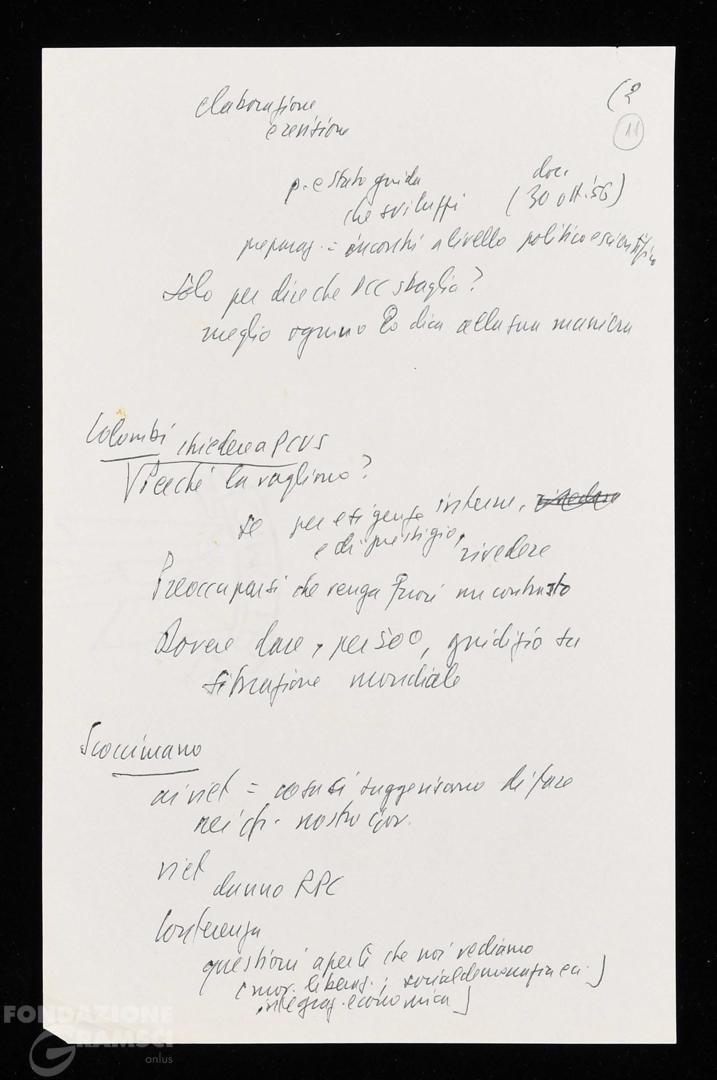 (2
11
elaborazione
e revisione
p. e stato guida doc.
che sviluppi (30 ott. '56)
preparaz. = incontri a livello politico e scientifico
Solo per dire che PCC sbaglia?
meglio ognuno lo dica alla sua maniera
Colombi chiedere a PCUS
Perché la vogliono?
se per esigenze interne,
e di prestigio, rivedere
Preoccuparsi che venga fuori un contrasto
Dovere dare, per 500, giudizio su
situazione mondiale
Scoccimarro
ai viet = cosa ci suggeriscono di fare
nei cfr. nostro gov.
viet
danno RPC
Conferenza
questioni aperte che noi vediamo
(mov. liberaz.; socialdemocrazia ecc.
integraz. economica)
FONDAZIONE
GRAMSCI
onlus